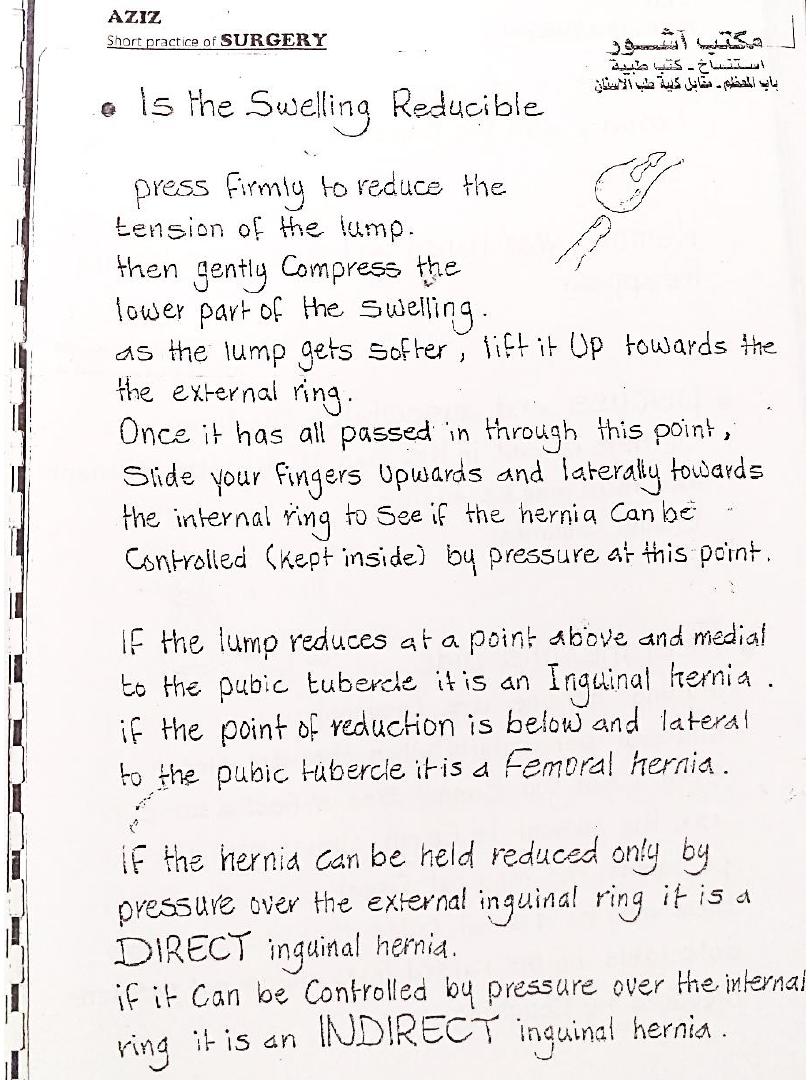 AZIZ
Short practice of SURGERY
مكتب آشور
استنساخ - كتب طبية
باب المعظم - مقابل كلية طب الاسنان
• Is the Swelling Reducible
press firmly to reduce the
tension of the lump.
then gently Compress the
lower part of the swelling.
as the lump gets softer, lift it Up towards the
the external ring.
Once it has all passed in through this point,
Slide your fingers Upwards and laterally towards
the internal ring to See if the hernia Can be
Controlled (kept inside) by pressure at this point.
If the lump reduces at a point above and medial
to the pubic tubercle it is an Inguinal hernia.
if the point of reduction is below and lateral
to the pubic tubercle it is a Femoral hernia.
if the hernia can be held reduced only by
pressure over the external inguinal ring it is a
DIRECT inguinal hernia.
if it Can be Controlled by pressure over the internal
ring it is an INDIRECT inguinal hernia.